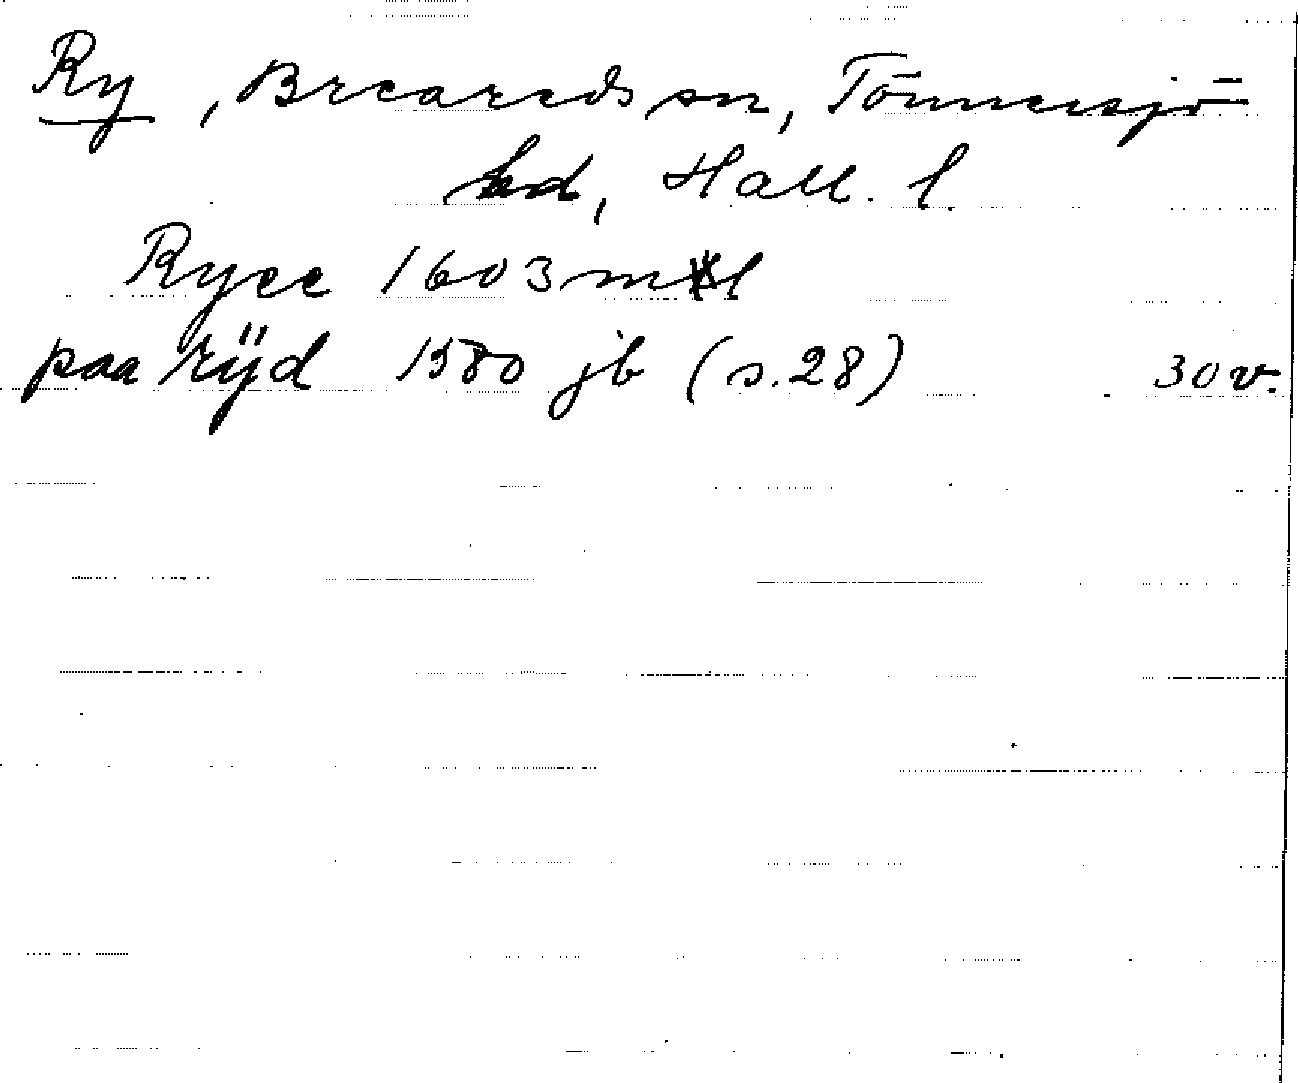 Ry, Breareds sn, Tönnersjö
hd, Hall. l
Ryee 1603 mtl
paa rÿd 1580 jb (s.28) 30 v.